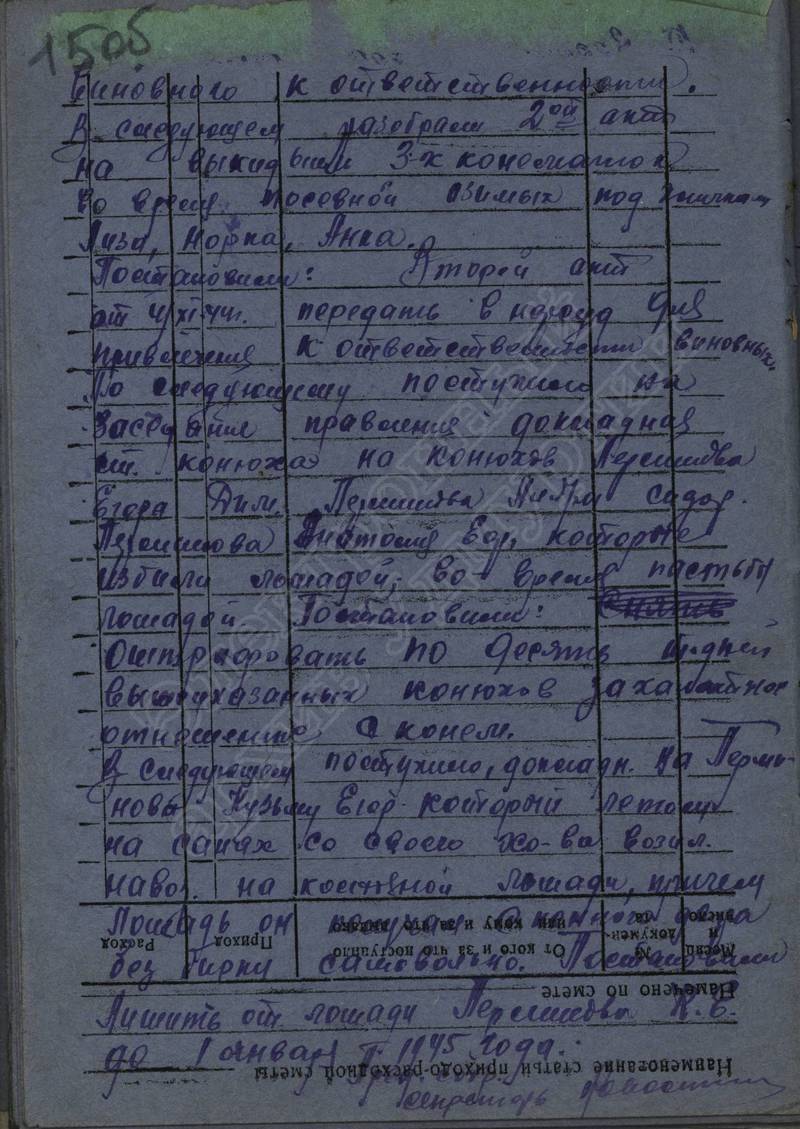 150б
виновного к ответственности.
В следующем разобрали 2ой акт
на выкидыши 3-х конематок
во время посевной озимых под кличкам
Лиза, Норка, Анка.
Постановили: Второй акт
от 4/XI-44г. передать в нарсуд для
привлечения к ответственности виновных.
По следующему поступило на
заседание правления докладная
ст. конюха на конюхов Перминова
Егора Дим. Перминова Сидор.
Перминова Анатолия Егор, которые
избили лошадой, во время пастьбы
лошадой. Постановили:
Оштрафовать по десять т-дней
вышеуказанных конюхов за халатное
отношение с конем.
В следующем поступило, докладн. на Перми-
нова Кузьму Егор. который летом
на санях со своего хо-ва возил
навоз на лошади, причем
лошадь он с конного двора
без бирки самовольно. Постановили
Лишить от лошади Перминова К.Е.
до 1 января 1945 года.
секретарь
Наименование статьи приходо-расходной сметы
Намечено по смете
Месяц и число
№ документа
От кого и за что поступило или кому и за что выдано
Приход
Расход